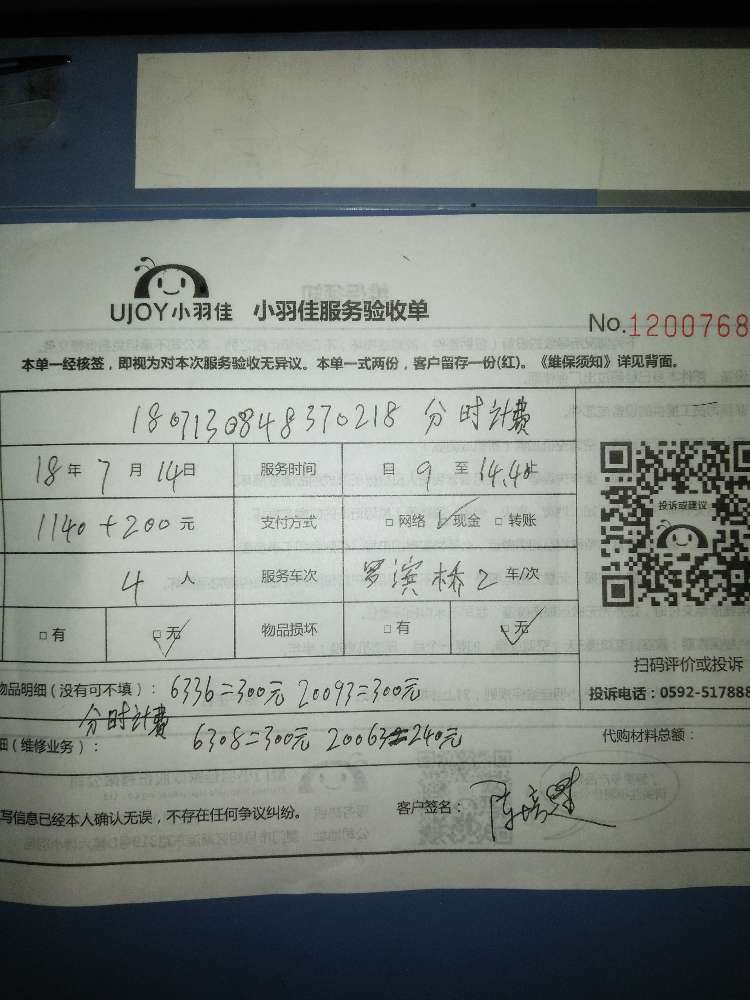 UJOY小羽佳 小羽佳服务验收单
No.1200768
本单一经核签，即视为对本次服务验收无异议。本单一式两份，客户留存一份(红)。《维保须知》详见背面。
1807130848370218 分时计费
18年 7月 14日 服务时间 自 9 至 14.40止
1140+200元 支付方式 □网络 ☑现金 □转账
4人 服务车次 罗滨桥2 车/次
□有 ☑无 物品损坏 □有 ☑无
投诉或建议
扫码评价或投诉
投诉电话：0592-517888
物品明细（没有可不填）：6336=300元 20093=300元
分时计费
细（维修业务）： 6308=300元 20063=240元
代购材料总额：
写信息已经本人确认无误，不存在任何争议纠纷。
客户签名：